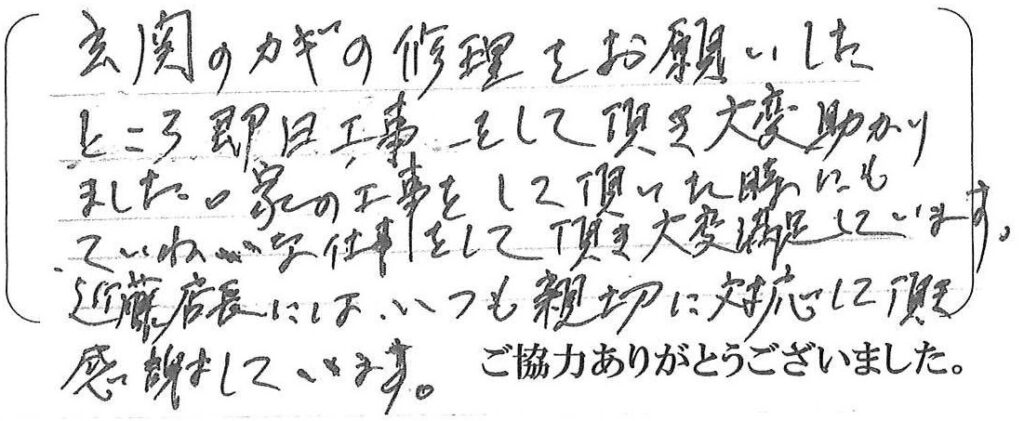 玄関のカギの修理をお願いした
ところ即日工事をして頂き大変助かり
ました。家の工事をして頂いた時にも
ていねいな仕事をして頂き大変満足しています。
近藤店長には、いつも親切に対応して頂き
感謝しています。
ご協力ありがとうございました。